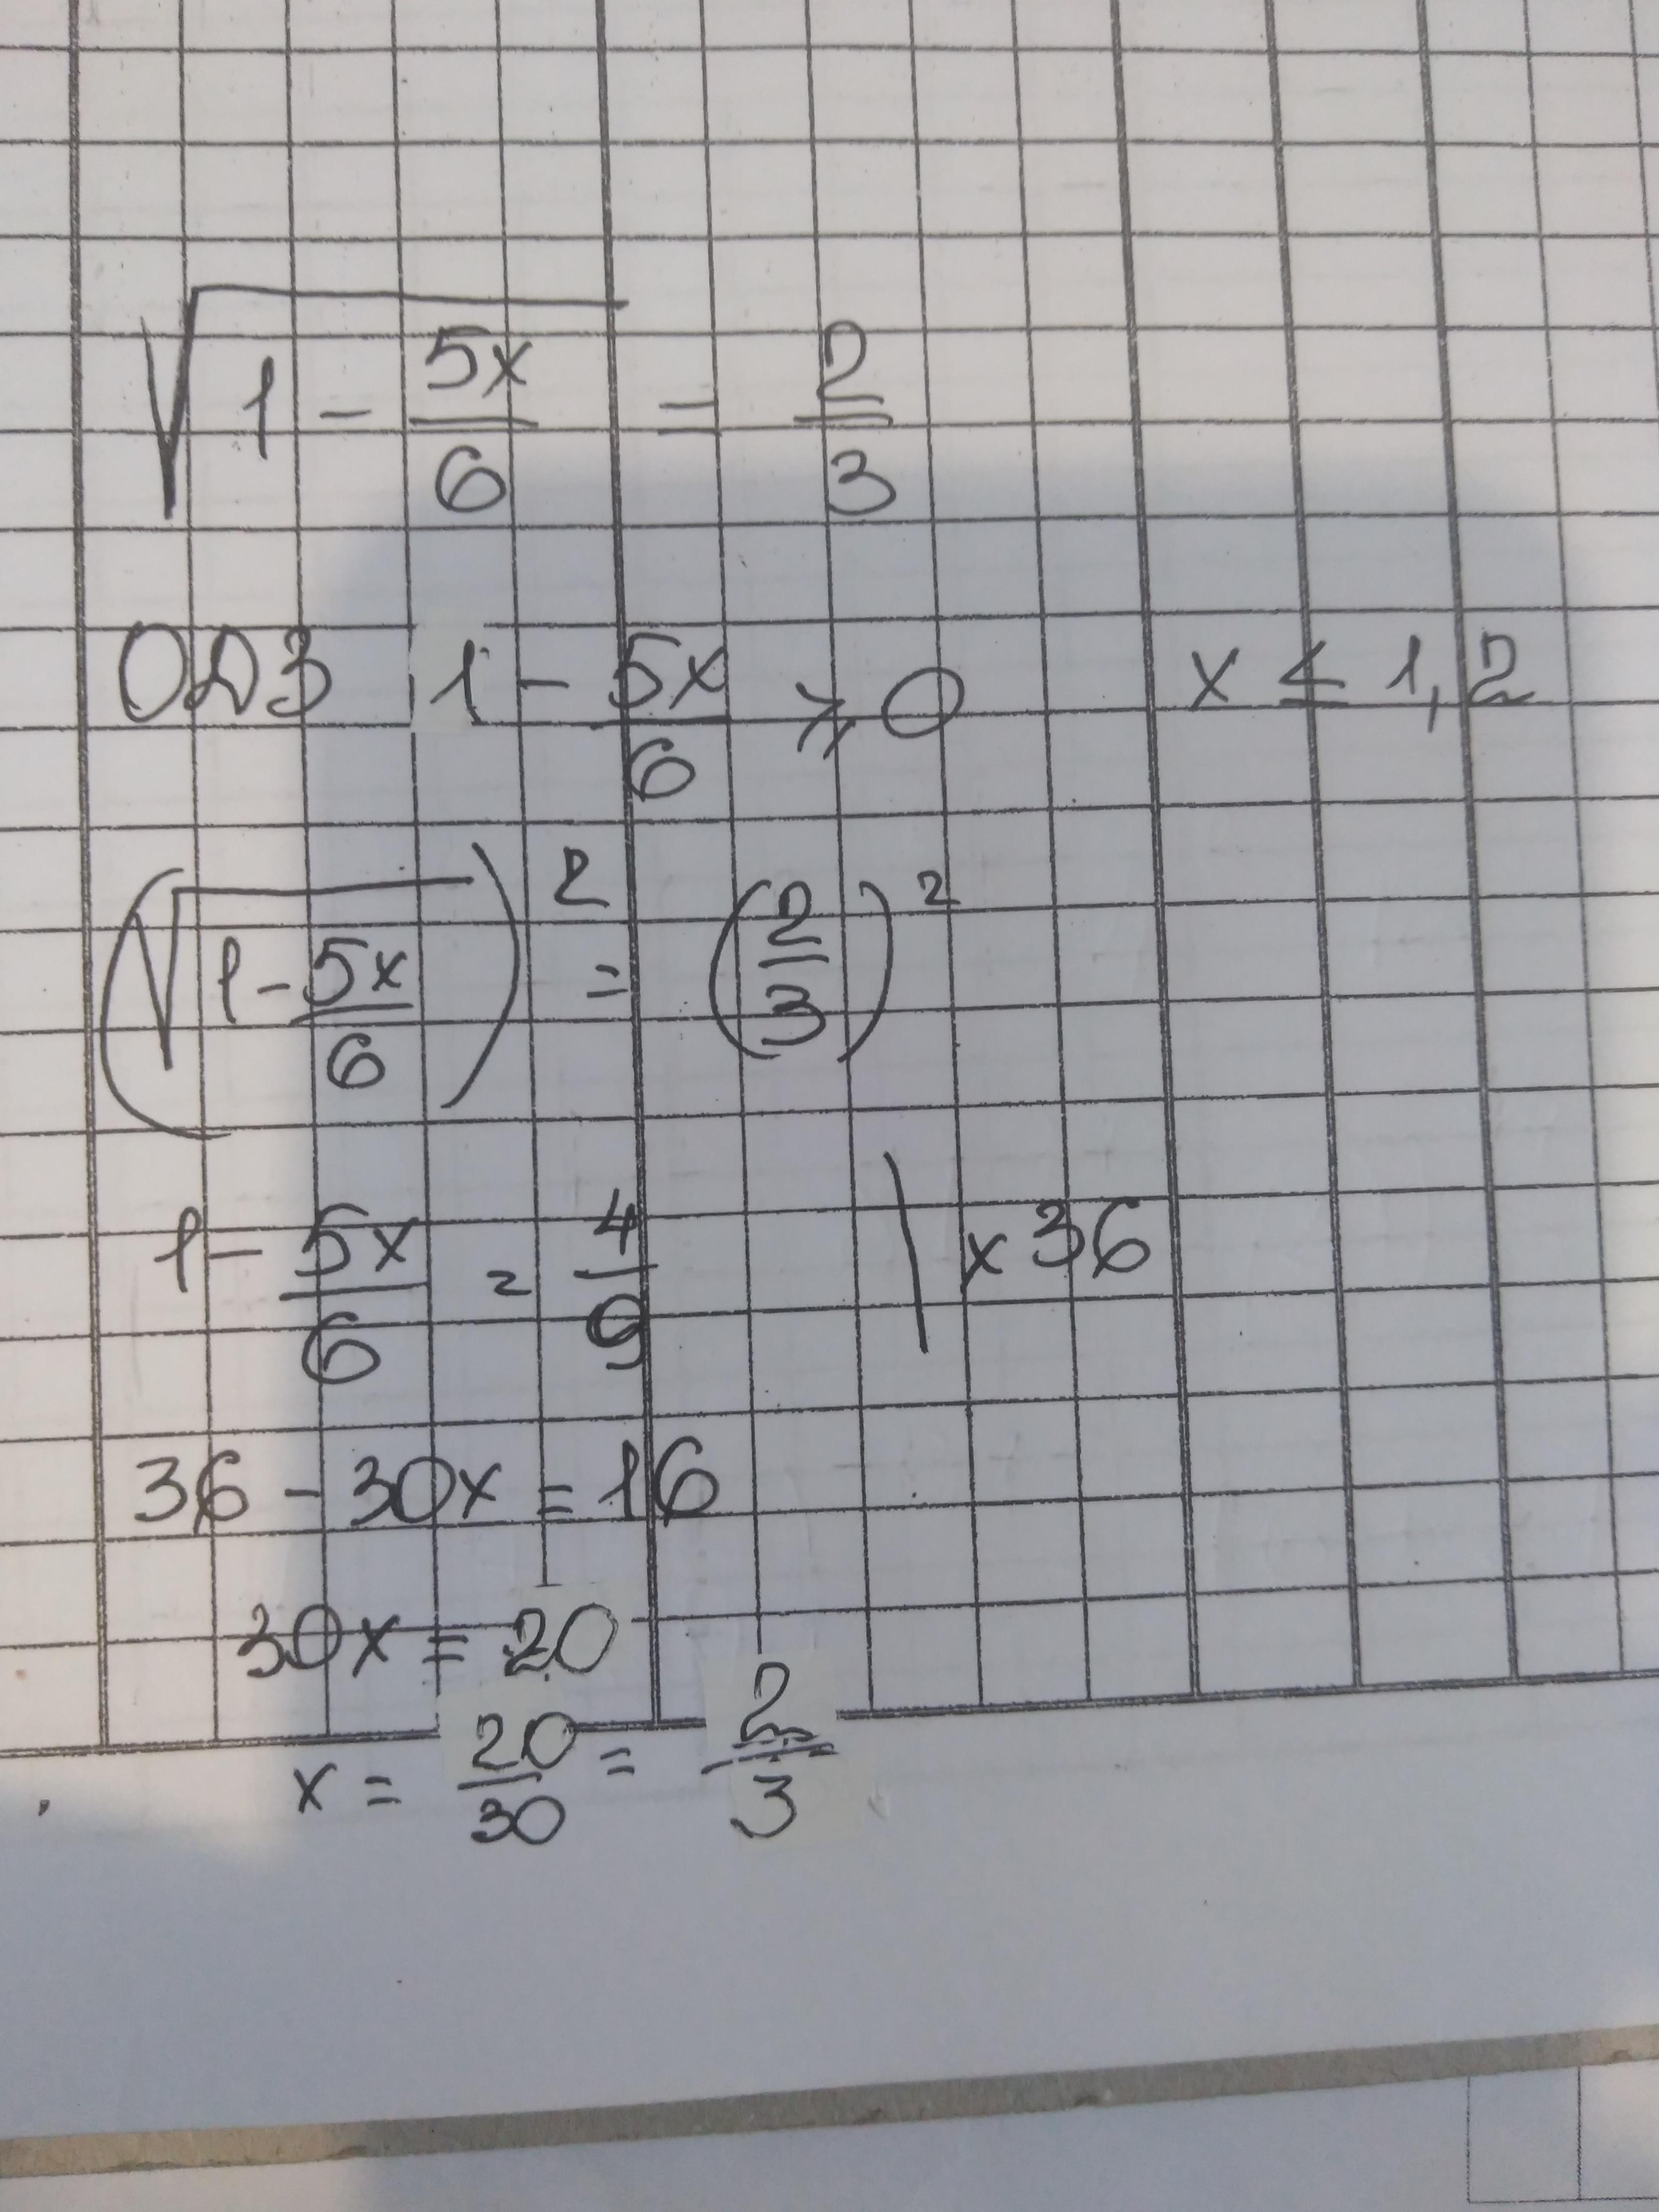 √(1 - 5x/6) = 2/3
ОДЗ 1 - 5x/6 ⩾ 0 x ≤ 1,2
(√(1 - 5x/6))² = (2/3)²
1 - 5x/6 = 4/9 | x 36
36 - 30x = 16
30x = 20
x = 20/30 = 2/3